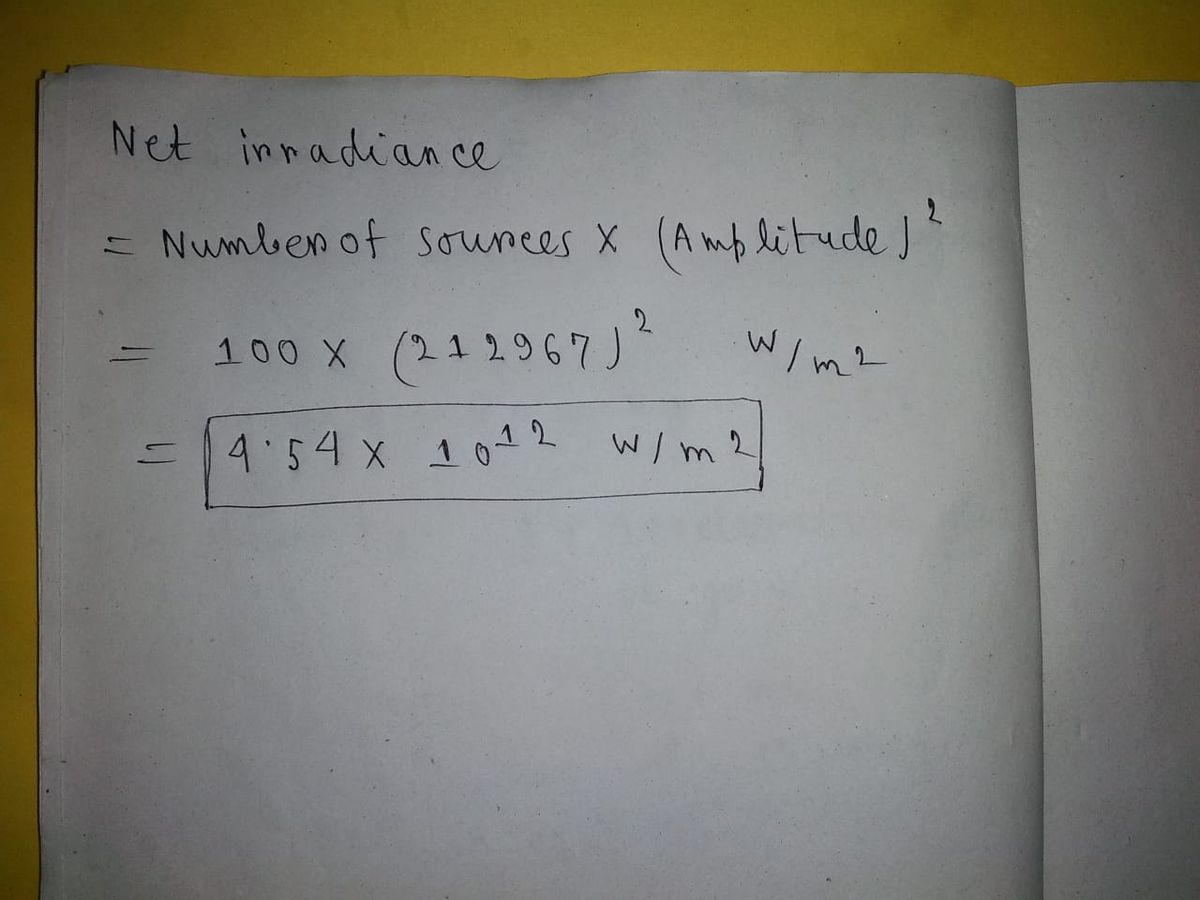 Net irradiance
= Number of sources X (Amplitude)²
= 100 X (212967)² W/m²
= 4.54 X 10¹² W/m²